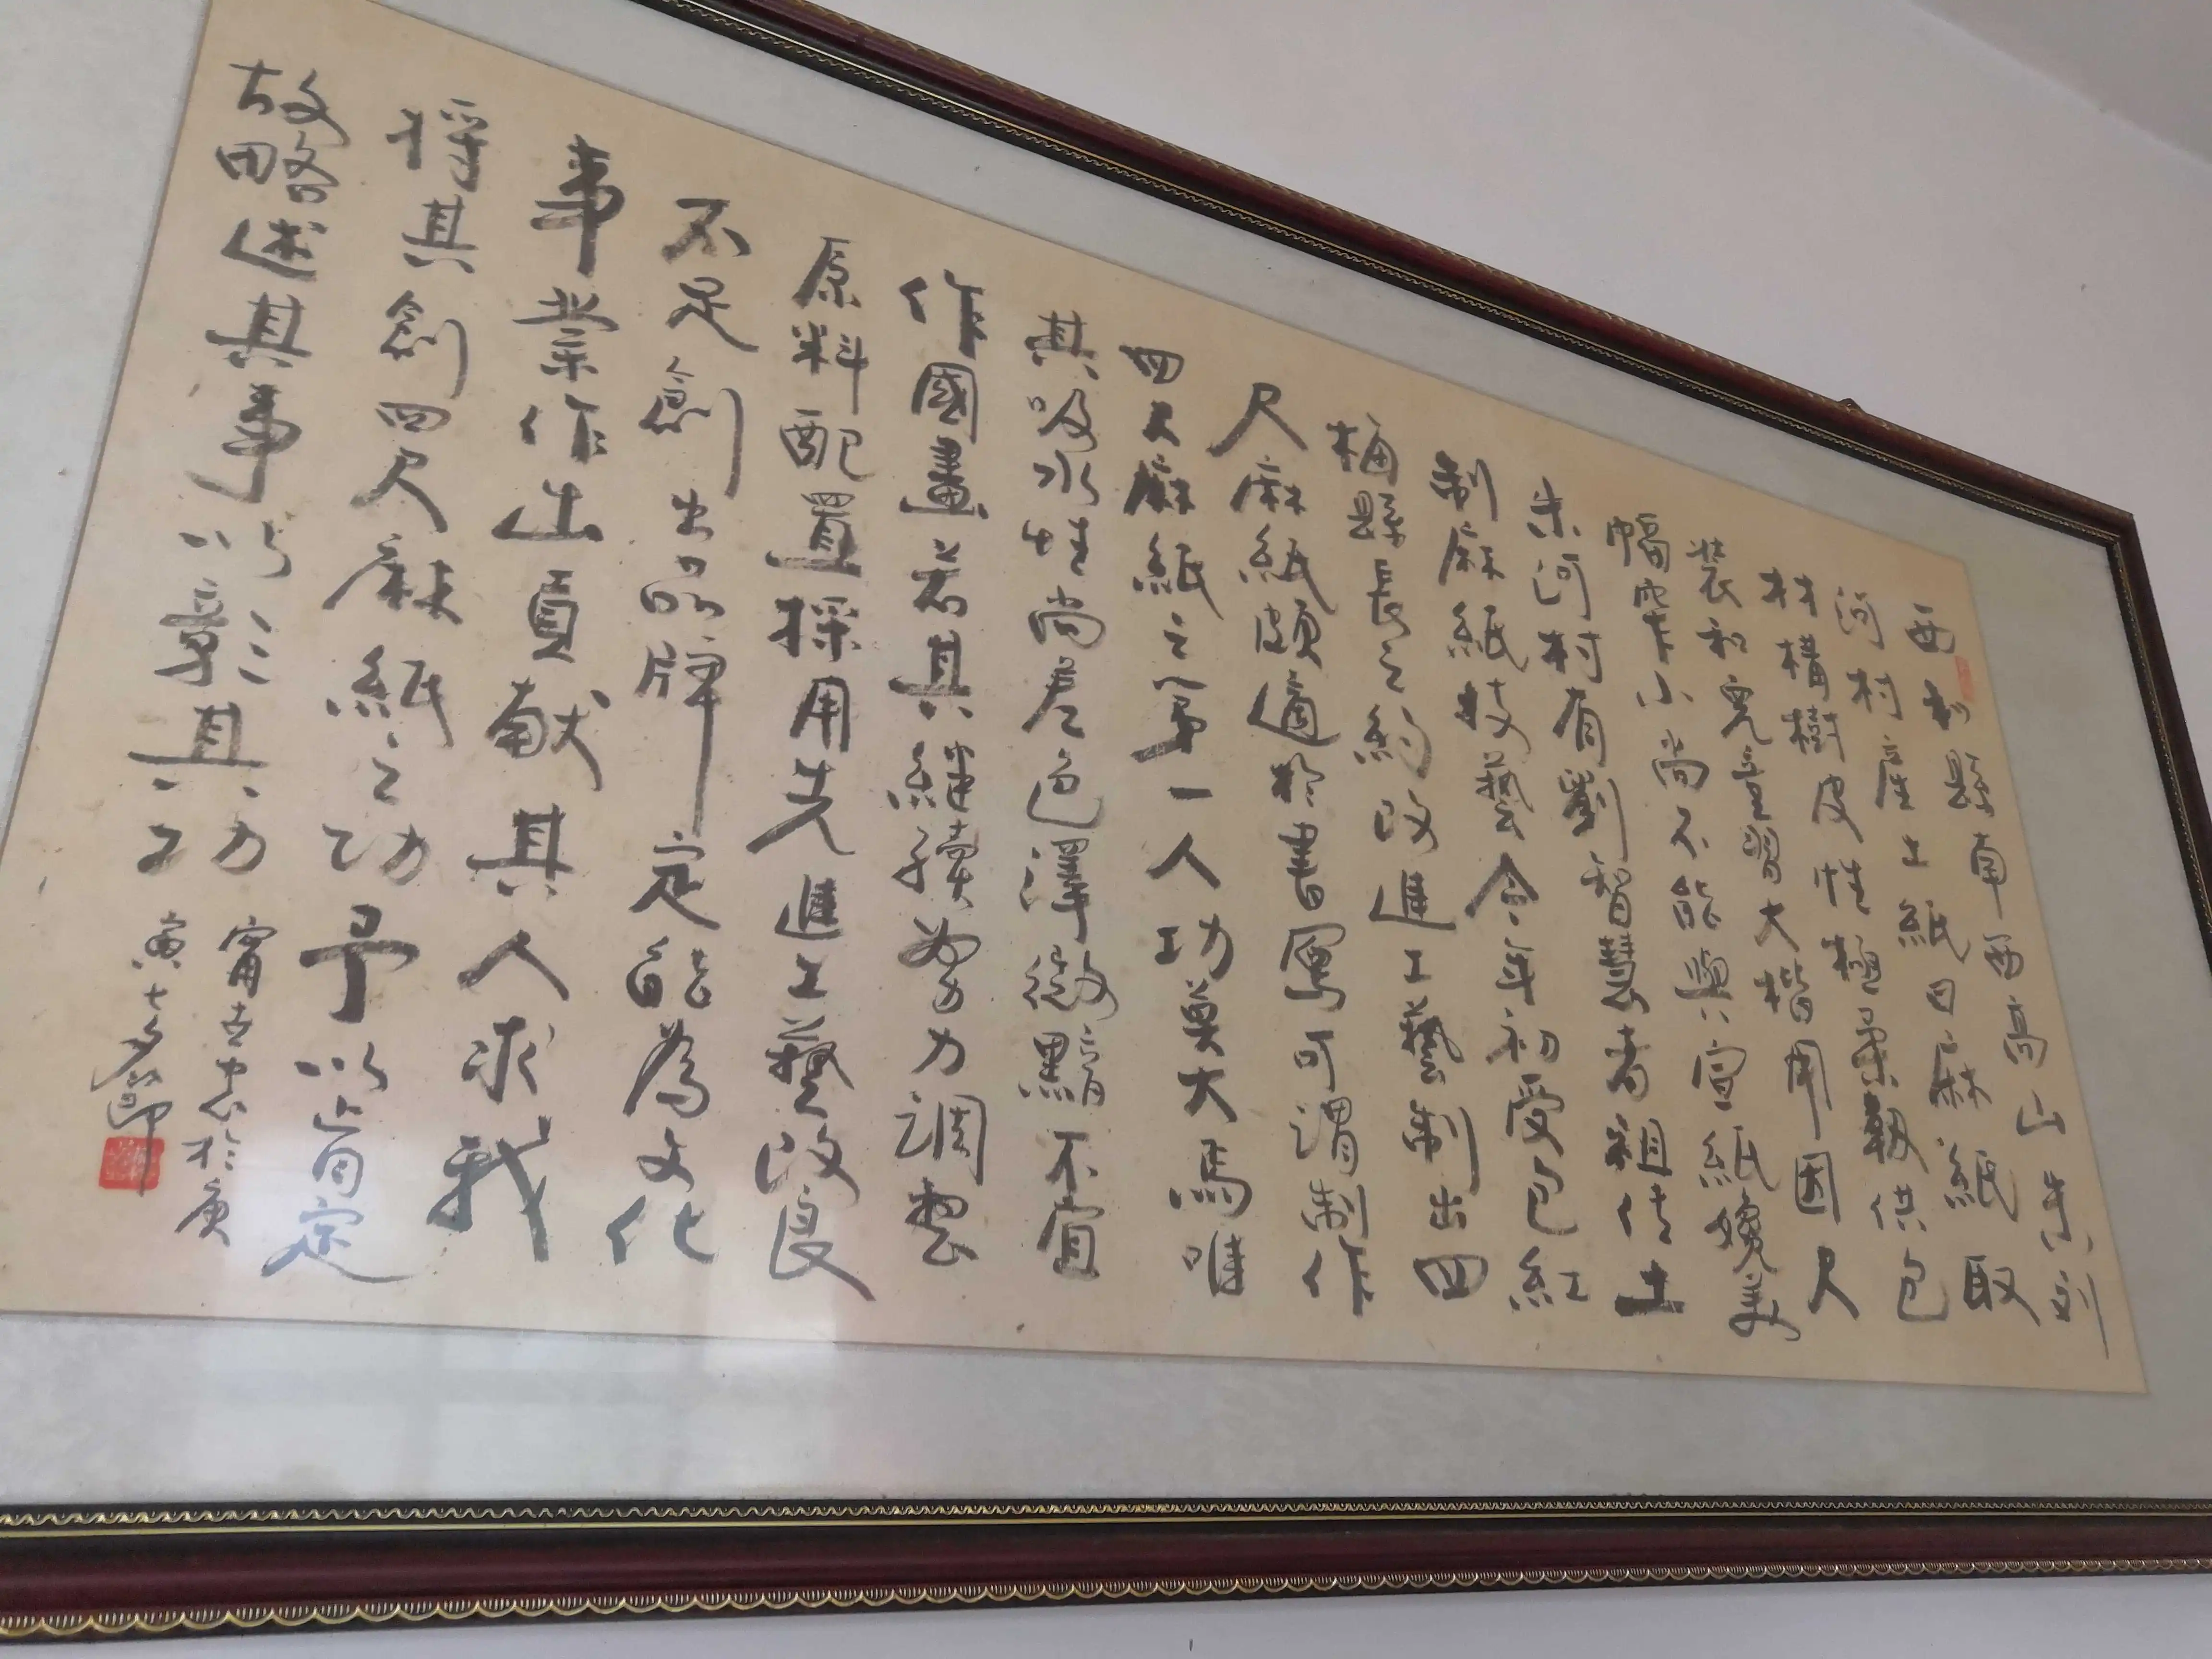 西和縣南西高山朱刘
河村產土紙曰麻紙取
材構樹皮性極柔韌供包
裝和兒童習大楷用因尺
幅窄小尚不能與宣紙媲美
朱河村有劉智慧者祖传土
制麻紙技藝今年初受包红
梅縣長之約改進工藝制出四
尺麻紙頗適於書寫可謂制作
四尺麻紙之第一人功莫大焉唯
其吸水性尚差色澤微黯不宜
作國畫若其繼續努力調整
原料配置採用先進工藝改良
不足創出品牌定能為文化
事業作出貢献其人求我
将其創四尺麻紙之功予以肯定
故略述其事以彰其功
甯世忠於庚
寅七夕節